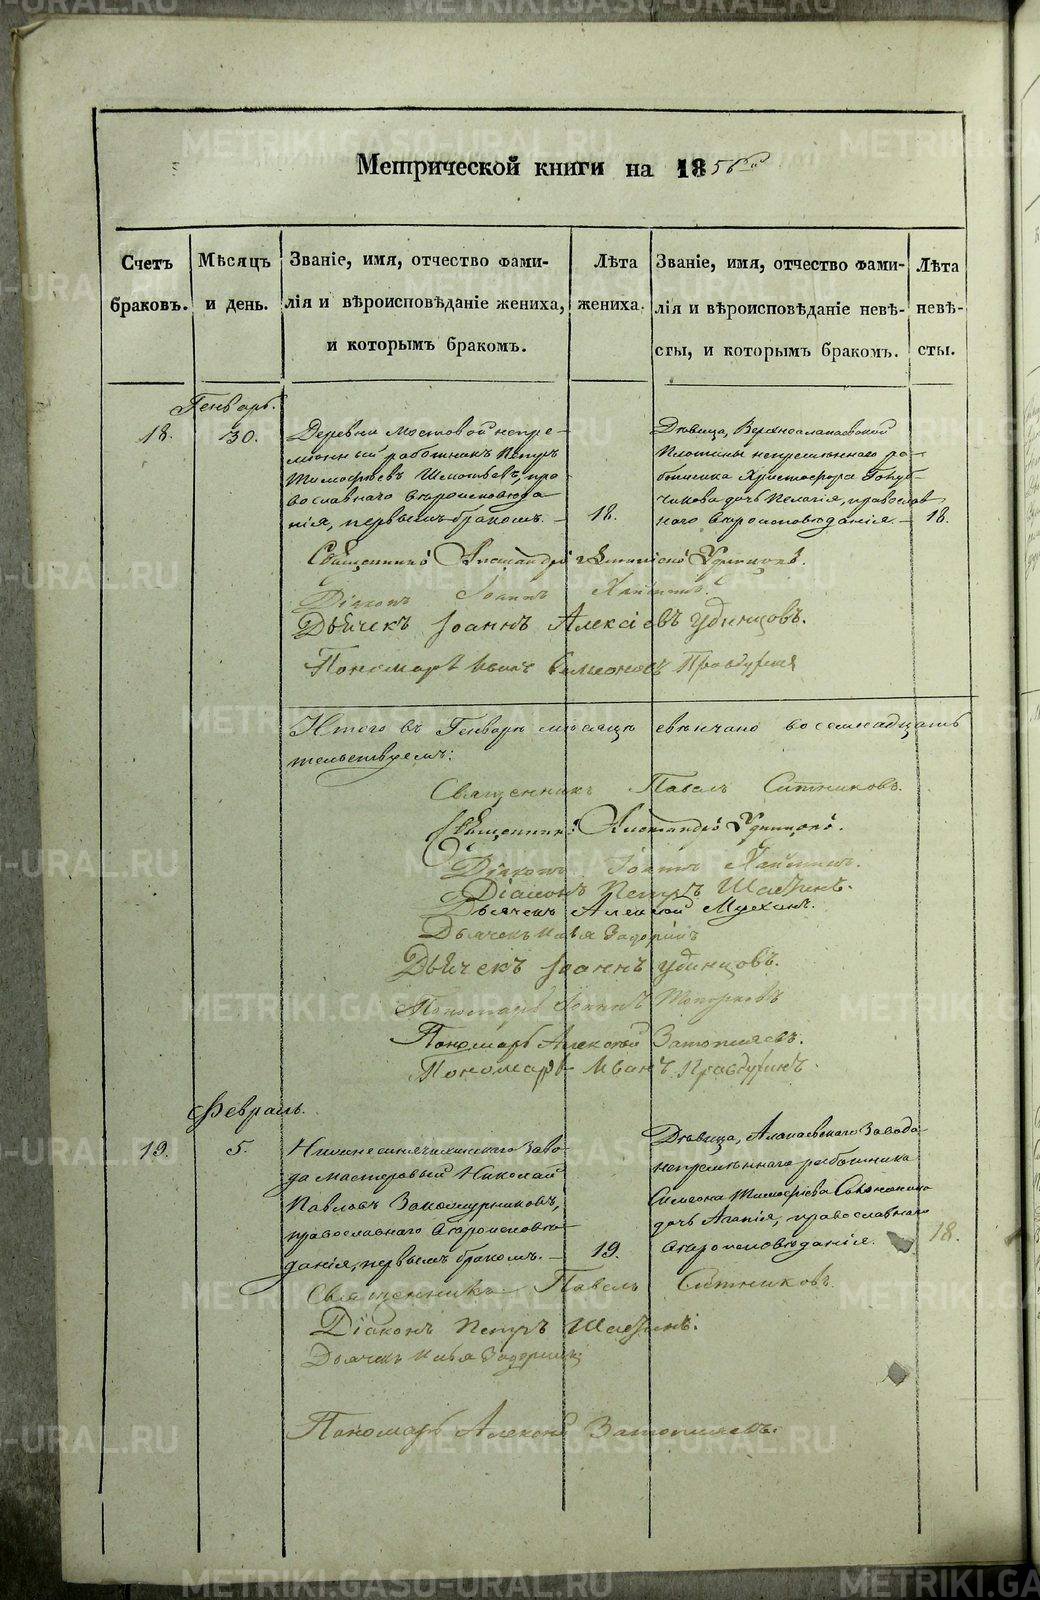 Метрической книги на 1856й
Счетъ браковъ.
Мѣсяцъ и день.
Званіе, имя, отчество фами-
лія и вѣроисповѣданіе жениха,
и которымъ бракомъ.
Лѣта жениха.
Званіе, имя, отчество фами-
лія и вѣроисповѣданіе невѣ-
сты, и которымъ бракомъ.
Лѣта невѣ-
сты.
Генварь.
18.
30.
Деревни Мостовой непре-
менный работникъ Петръ
Тимофѣевъ пра-
вославнаго вѣроисповѣда-
нія, первымъ бракомъ.
18.
Дѣвица, Верхнеалапаевской
Плотины непременнаго ра-
ботника Христофора Голуб-
чикова дочь Пелагія, православ
наго вѣроисповѣданія.
18.
Священникъ Александръ Удинцовъ.
Діаконъ Іоаннъ
Дьячекъ Іоаннъ Алексіевъ Удинцовъ.
Пономарь Иванъ Симеоновъ Правдухинъ
Итого въ Генварѣ мѣсяцѣ свѣнчано восемнадцать
Священникъ Павелъ Ситниковъ.
Священникъ Александръ Удинцовъ.
Діаконъ Іоаннъ
Діаконъ Петръ
Дьячекъ Алексѣй
Дьячекъ Илья Задоринъ
Дьячекъ Іоаннъ Удинцовъ.
Пономарь Іоаннъ Топорковъ
Пономарь Алексѣй Затопляевъ.
Пономарь Иванъ Правдухинъ.
Февраль.
19.
5.
Нижнесинячихинскаго Заво-
да мастеровый Николай
Павловъ Закомурниковъ,
православнаго вѣроисповѣ-
данія, первымъ бракомъ.
19.
Дѣвица, Алапаевскаго Завода
непремѣннаго работника
Симеона Тимофѣева
дочь Агапія, православнаго
вѣроисповѣданія.
18.
Священникъ Павелъ Ситниковъ
Діаконъ Петръ
Дьячекъ Илья Задоринъ
Пономарь Алексѣй Затопляевъ.
METRIKI.GASO-URAL.RU